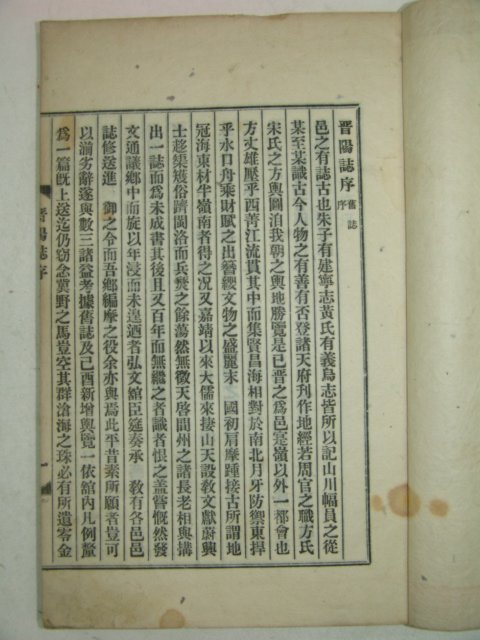 晋陽誌序 舊誌序
邑之有誌古也朱子有建寧志黃氏有義烏志皆所以記山川幅員之從
某至某識古今人物之有善有否登諸天府刊作地經若周官之職方氏
宋氏之方輿圖洎我朝之輿地勝覽是已晋之爲邑寔嶺以外一都會也
方丈雄壓乎西菁江流貫其中而集賢昌海相對於南北月牙防禦東捍
乎水口舟乘財賦之出簪纓文物之盛麗末 國初肩摩踵接古所謂地
冠海東材半嶺南者得之况又嘉靖以來大儒來捿山天設敎文獻蔚興
士趍渠矱俗躋閩洛而兵燹之餘蕩然無徵天啓間州之諸長老相與搆
出一誌而爲未成書其後且又百年而無繼之者識者恨之盖嘗慨然發
文通議鄉中而旋以年浸而未遑廼者弘文舘臣筵奏承 敎有各邑邑
誌修送進 御之令而吾鄉編摩之役余亦與焉此平昔素所願者豈可
以湔劣辭遂與數三諸益考據舊誌及己酉新增輿覽一依舘内凡例釐
爲一篇旣上送迄仍窃念冀野之馬豈空其群滄海之珠必有所遺零金
晋陽誌序
一